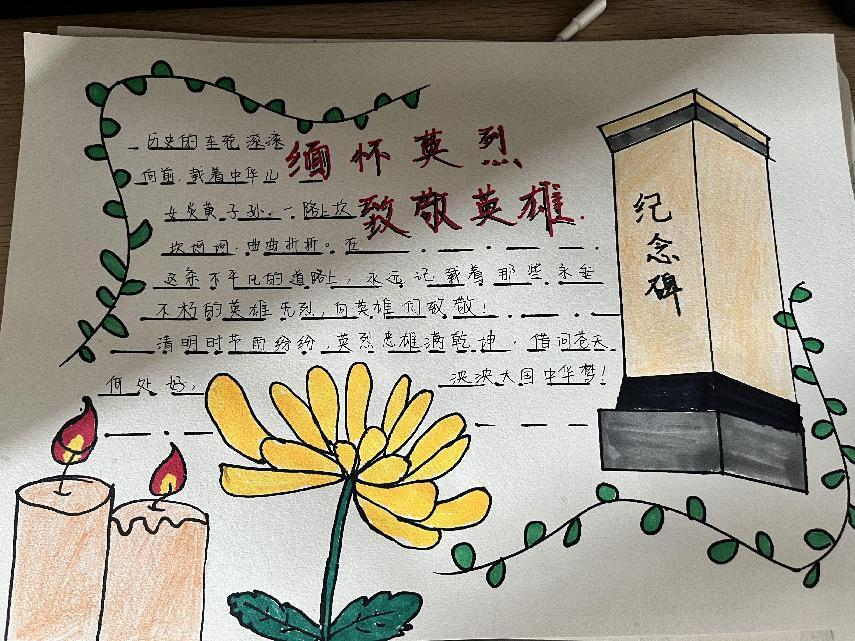 缅怀英烈
致敬英雄.
历史的车轮滚滚
向前,载着中华儿
女炎黄子孙。一路上坎
坎坷坷,曲曲折折。在
这条不平凡的道路上,永远记载着那些永垂
不朽的英雄先烈,向英雄们致敬!
清明时节雨纷纷,英烈忠雄满乾坤,借问苍天
何处好,泱泱大国中华梦!
纪念碑